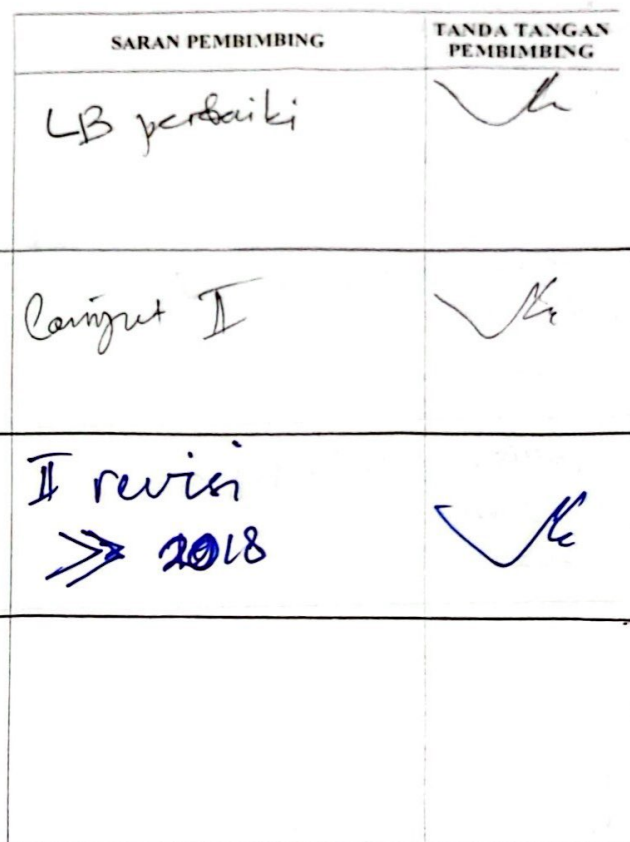 SARAN PEMBIMBING
TANDA TANGAN
PEMBIMBING
LB perbaiki
Lanjut II
II revisi
>> 2018